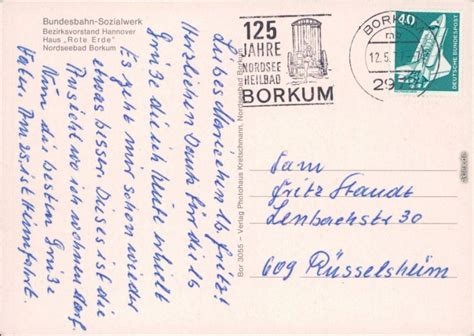 Bundesbahn-Sozialwerk
Bezirksvorstand Hannover
Haus „Rote Erde"
Nordseebad Borkum
125
JAHRE
NORDSEE
HEILBAD
BORKUM
BORKUM
12.5.
297
40
DEUTSCHE BUNDESPOST
Liebes Mariechen lb. Fritz!
Herzlichen Dank für die lb
Grüße die ich heute erhielt
Es geht mir schon wieder
etwas besser. Dieses ist die
wo ich wohnen darf.
Nun die besten Grüße
Am 25. ist Heimfahrt.
Bor 3055 – Verlag Photohaus Kretschmann, Nordseebad Borkum
Fam
Fritz Staudt
Lenbachstr 30
609 Rüsselsheim